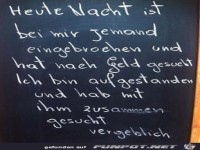 Heute Nacht ist
bei mir jemand
eingebrochen und
hat nach Geld gesucht
Ich bin aufgestanden
und hab mit
ihm zusammen
gesucht
vergeblich
gefunden auf FUNPOT.NET